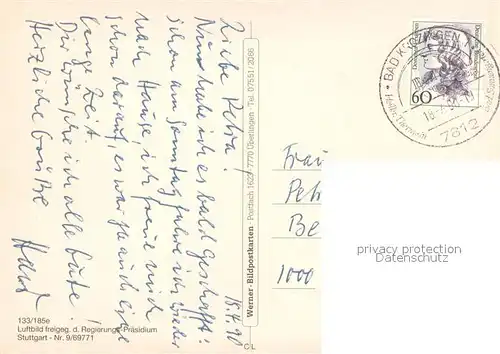 Liebe Petra!
Nun habe ich es bald geschafft!
schon am Sonntag fahre ich wieder
nach Hause, ich freue mich
schon darauf, es war ja auch eine
lange Zeit.
Dir wünsche ich alles Gute!
Herzliche Grüße
15.7.90
Werner Bildpostkarten · Postfach 1627 · 7770 Überlingen · Tel. 07551/2966
CL
133/185e
Luftbild freigeg. d. Regierungs-Präsidium
Stuttgart - Nr. 9/69771
Frau
Pet
Be
1000
60
BAD KROZINGEN 1
7812
privacy protection
Datenschutz